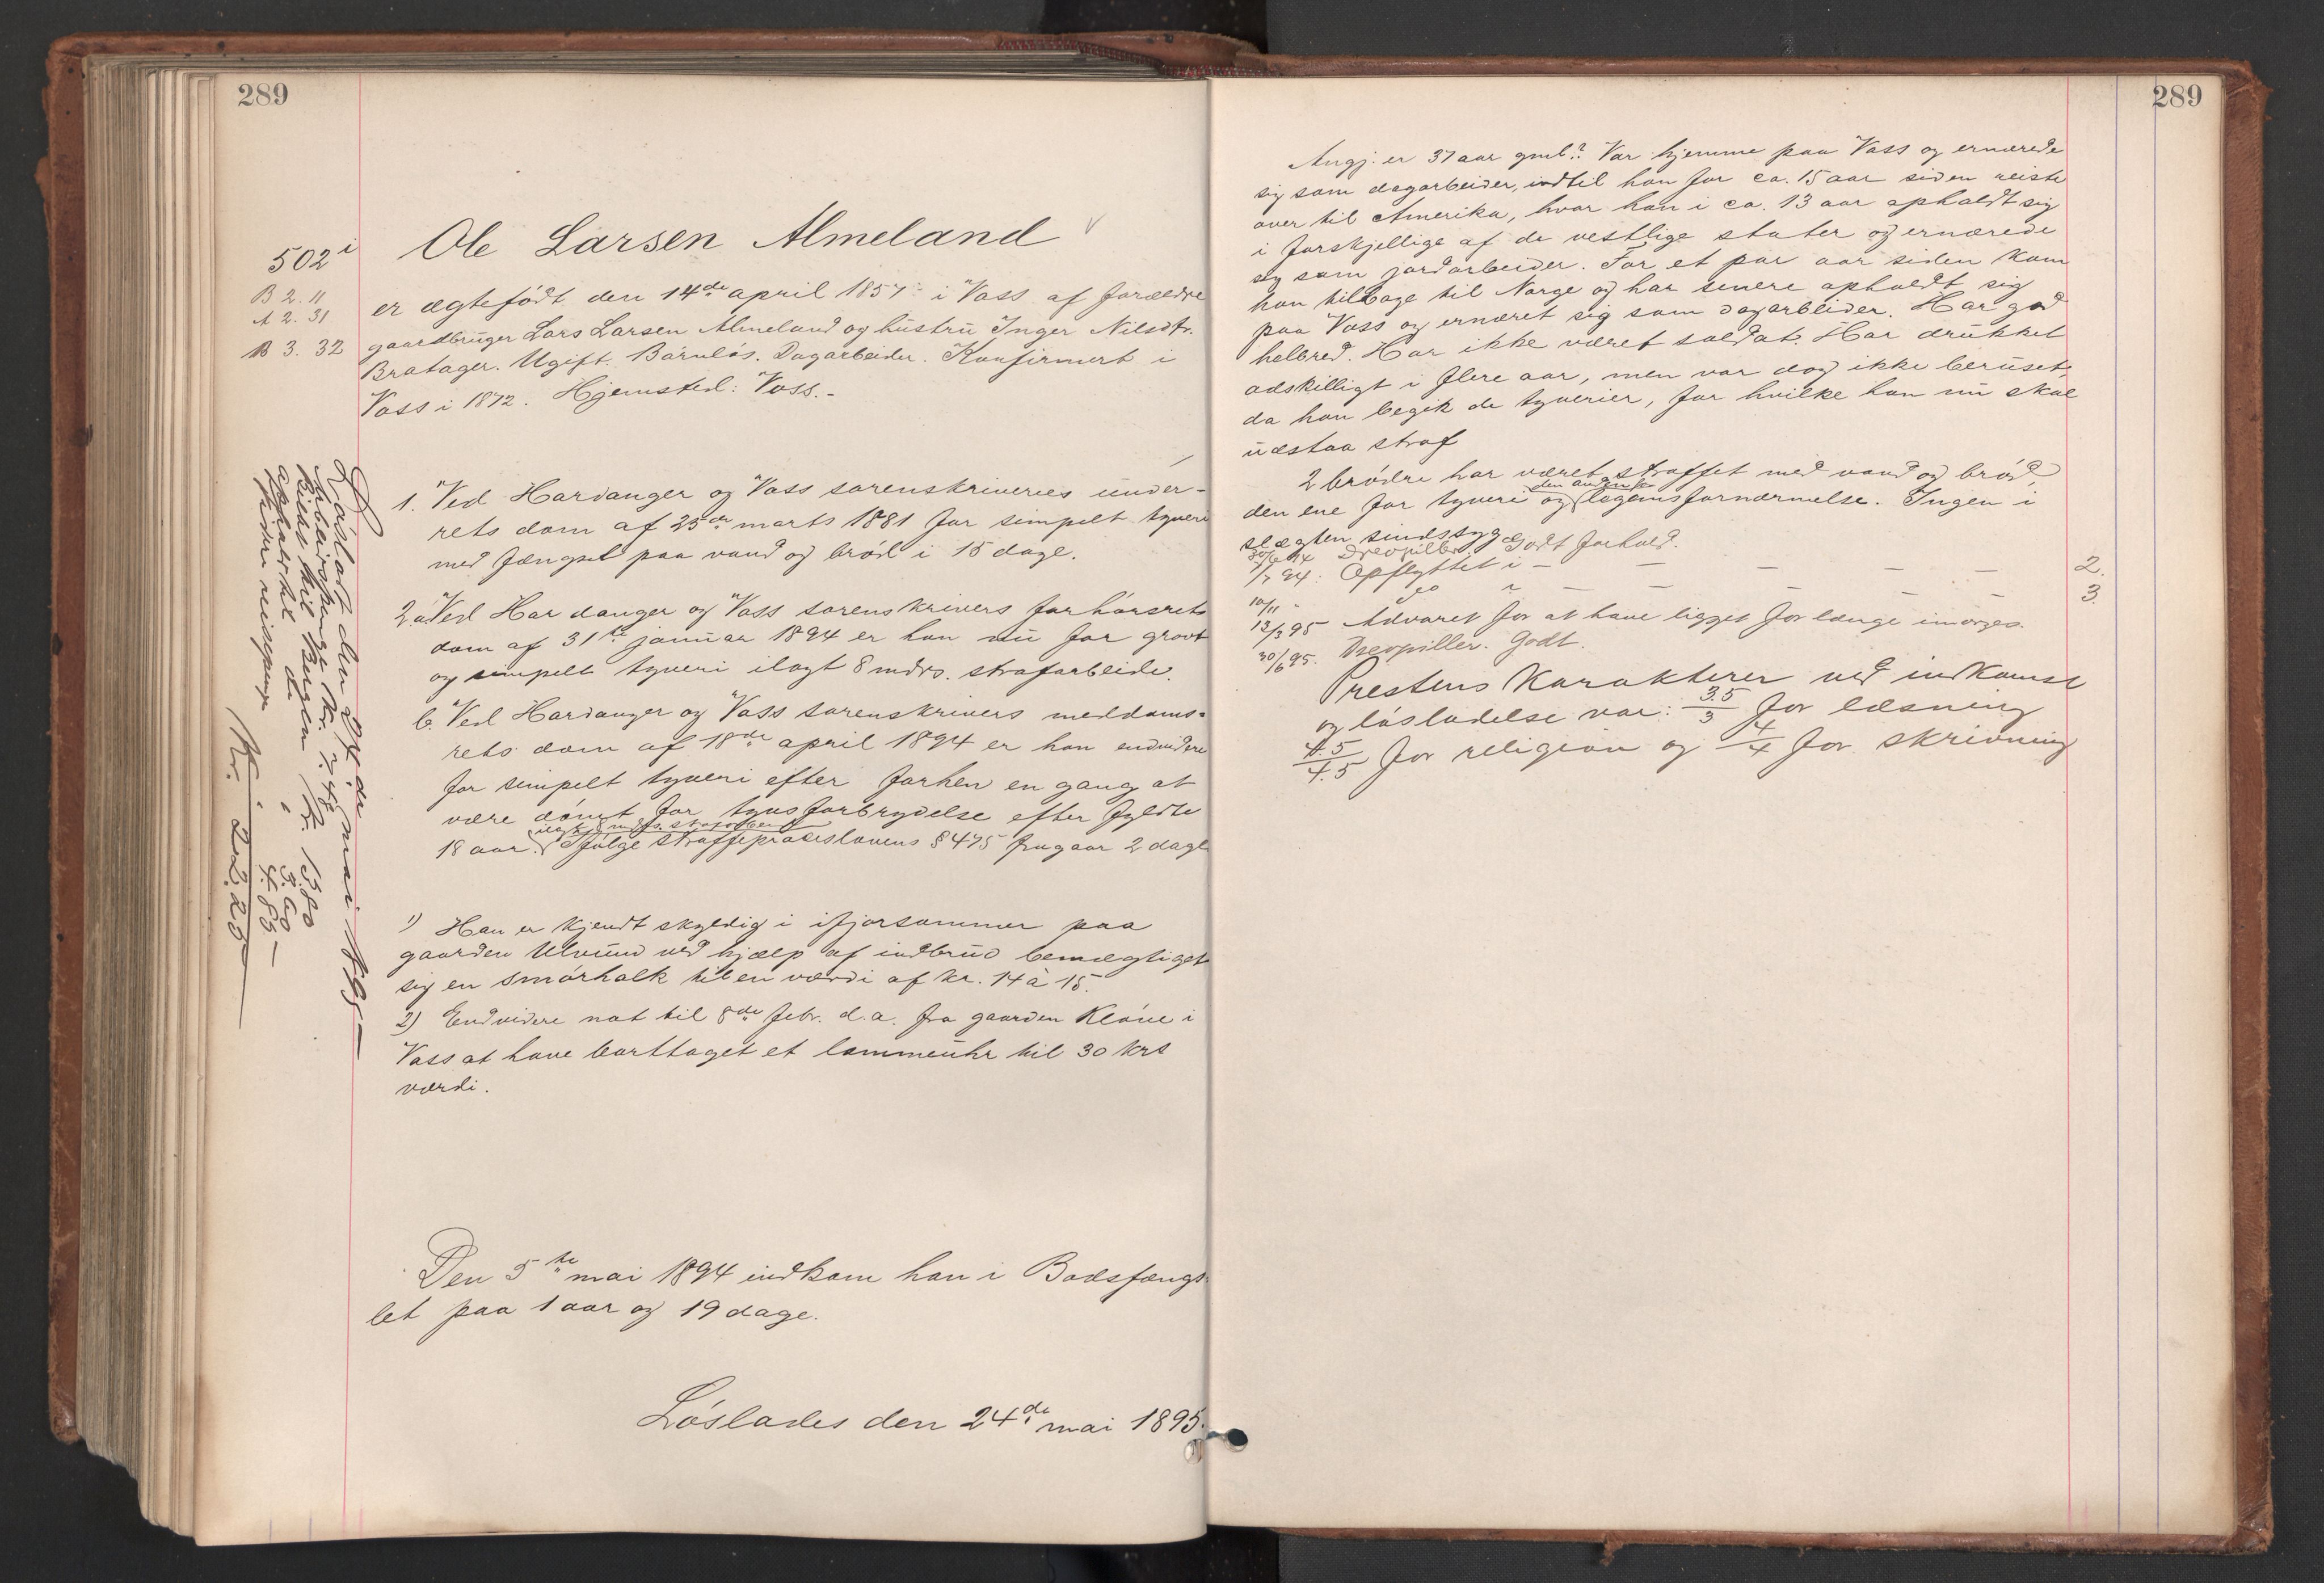 289
502 i
B 2. 11
A 2. 31
B 3. 32
Ole Larsen Almeland
er ægtefødt den 14de april 1857 i Voss af forældre
gaardbruger Lars Larsen Almeland og hustru Inger Nilsdtr.
Bratager. Ugift. Barnløs. Dagarbeider. Konfirmert i
Voss i 1872. Hjemsted: Voss.-
1. Ved Hardanger og Voss sorenskriveries under-
rets dom af 25de marts 1881 for simpelt tyveri
med fængsel paa vand og brød i 15 dage.
2.a. Ved Hardanger og Voss sorenskrivers forhørsrets
dom af 31te januar 1894 er han nu for grovt
og simpelt tyveri ilagt 8 mdrs. strafarbeide.
b. Ved Hardanger og Voss sorenskrivers meddoms-
rets dom af 18de april 1894 er han endvidere
for simpelt tyveri efter forhen en gang at
være dømt for tyvsforbrydelse efter fyldte
18 aar. Ifølge straffeproceslovens § 475 fragaar 2 dage
1) Han er kjendt skyldig i ifjorsommer paa
gaarden Ulvund ved hjælp af indbrud bemægtiget
sig en smørhalk til en værdi af kr. 14 à 15.
2) Endvidere nat til 8de febr. d.a. fra gaarden Kløve i
Voss at have borttaget et lommeuhr til 30 krs
værdi.
Den 5te mai 1894 indkom han i Bodsfængs-
let paa 1 aar og 19 dage.
Løslades den 24de mai 1895.
Løsladt den 24de mai 1895
Arbeidspenge kr.
Billet til Bergen kr. 13.80
do 3.60
reisepenge 4.85
Kr. 22.25
289
Angj. er 37 aar gml. Var hjemme paa Voss og ernærede
sig som dagarbeider, indtil han for ca. 15 aar siden reiste
over til Amerika, hvor han i ca. 13 aar opholdt sig
i forskjellige af de vestlige stater og ernærede
sig som jordarbeider. For et par aar siden kom
han tilbage til Norge og har senere opholdt sig
paa Voss og ernæret sig som dagarbeider. Har god
helbred. Har ikke været soldat. Har drukket
adskilligt i flere aar, men var dog ikke beruset,
da han begik de tyverier, for hvilke han nu skal
udstaa straf
2 brødre har været straffet med vand og brød,
den ene for tyveri og den anden legemsfornærmelse. Ingen i
slægten sindssyge
30/6 94 Drevpiller. Godt forhold.
1/7 94: Opflyttet i — — — — 2.
10/11 " do i — — — — 3.
13/3 95 Advaret for at have ligget for længe imorges.
30/6 95. Drevpiller. Godt.
Prestens karakterer ved indkomst
og løsladelse var: 3.5/3 for læsning
4.5/4.5 for religion og 4/4 for skrivning